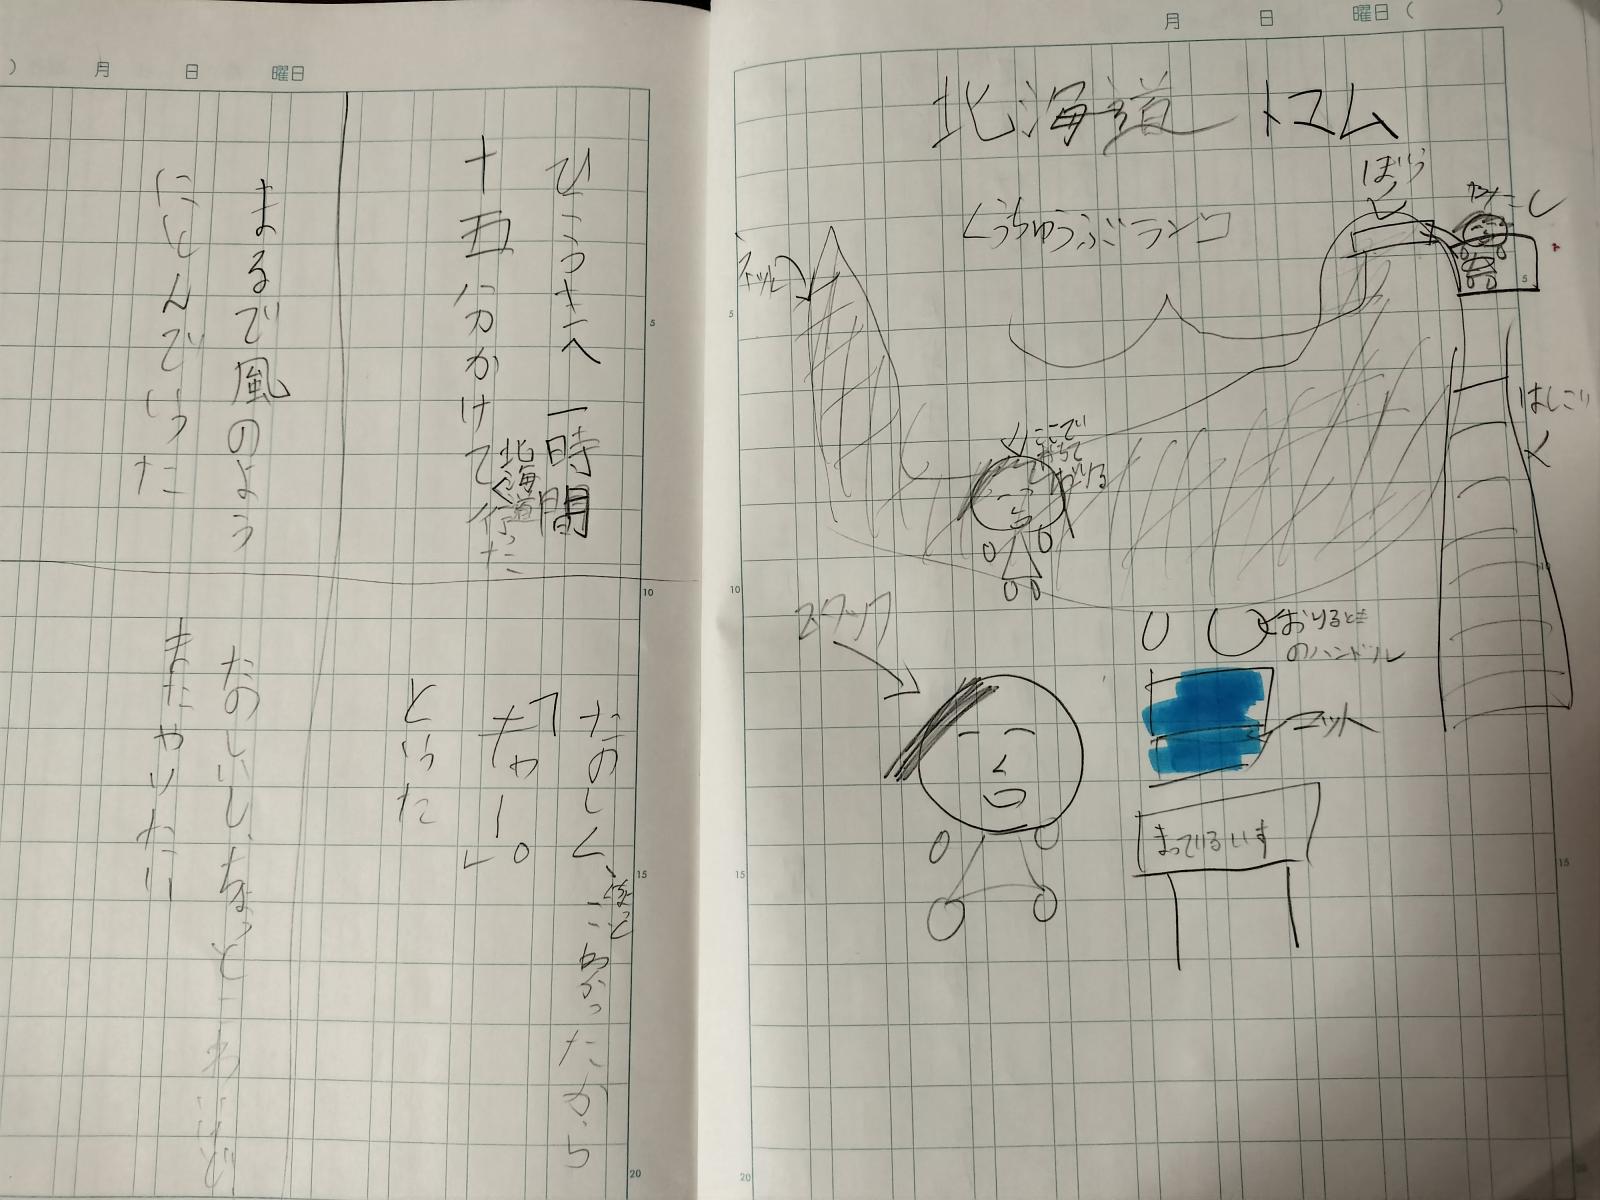 月 日 曜日 (
)
北海道 トマム
くうちゅうぶランコ
ぼう
わたし
ネット
はしご
ここで
まって
スタッフ
おりるとき
のハンドル
マット
まっているいす
) 月 日 曜日
ひこうきで 一時間
十五分かけて
北海道
行った
まるで風のよう
にとんでいった
たのしく、
ちょっと
こわかったから
「キャー。」
といった
たのしいし、ちょっとこわいけど
またやりたい
5
10
15
20
5
10
15
20
5
10
15